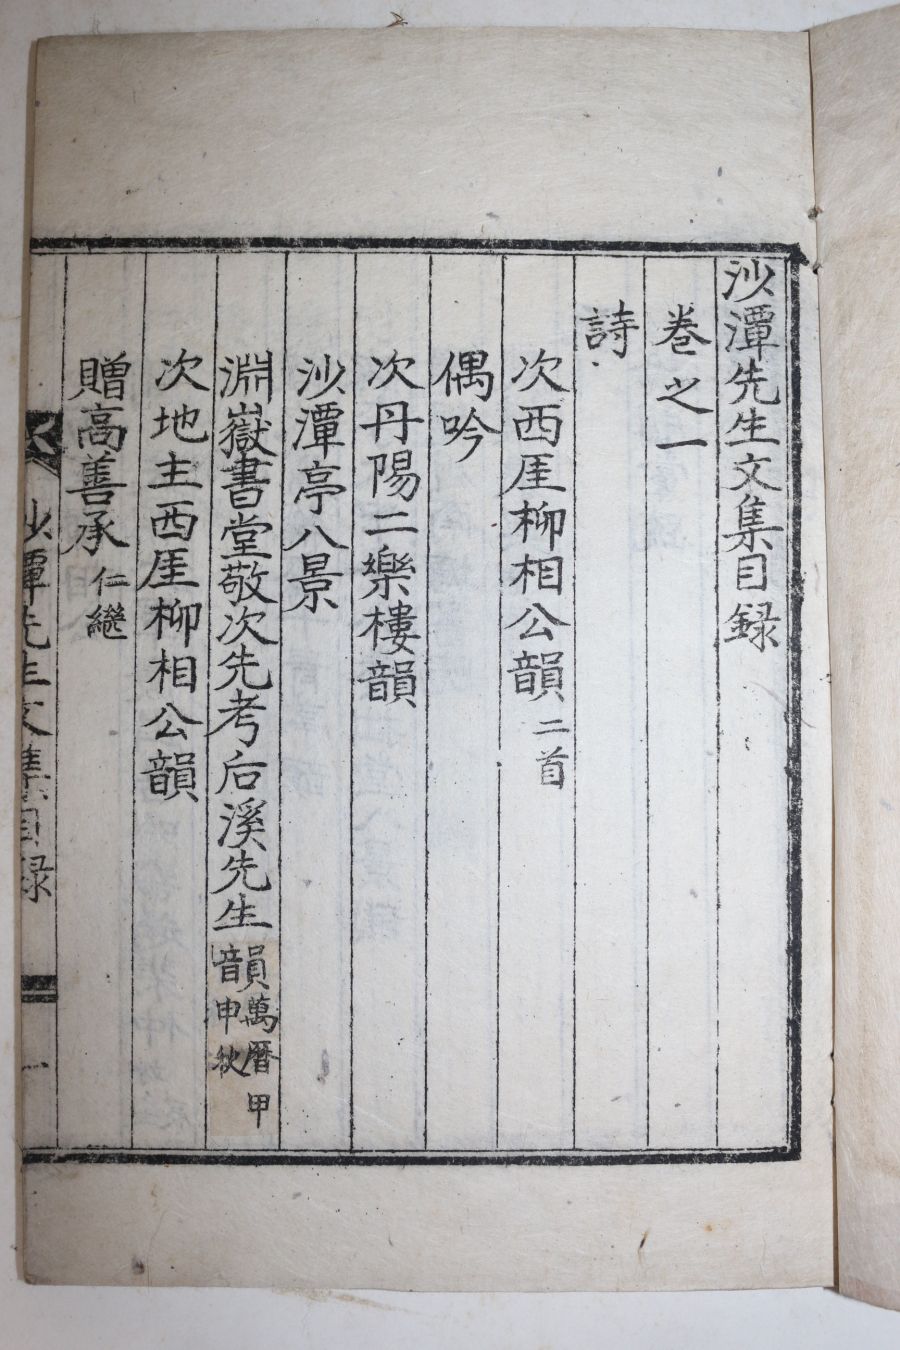 沙潭先生文集目録
巻之一
詩
次西厓柳相公韻 二首
偶吟
次丹陽二樂樓韻
沙潭亭八景
淵嶽書堂敬次先考后溪先生韻 萬曆甲申秋
次地主西厓柳相公韻
贈高善承 仁繼
沙潭先生文集目録 一